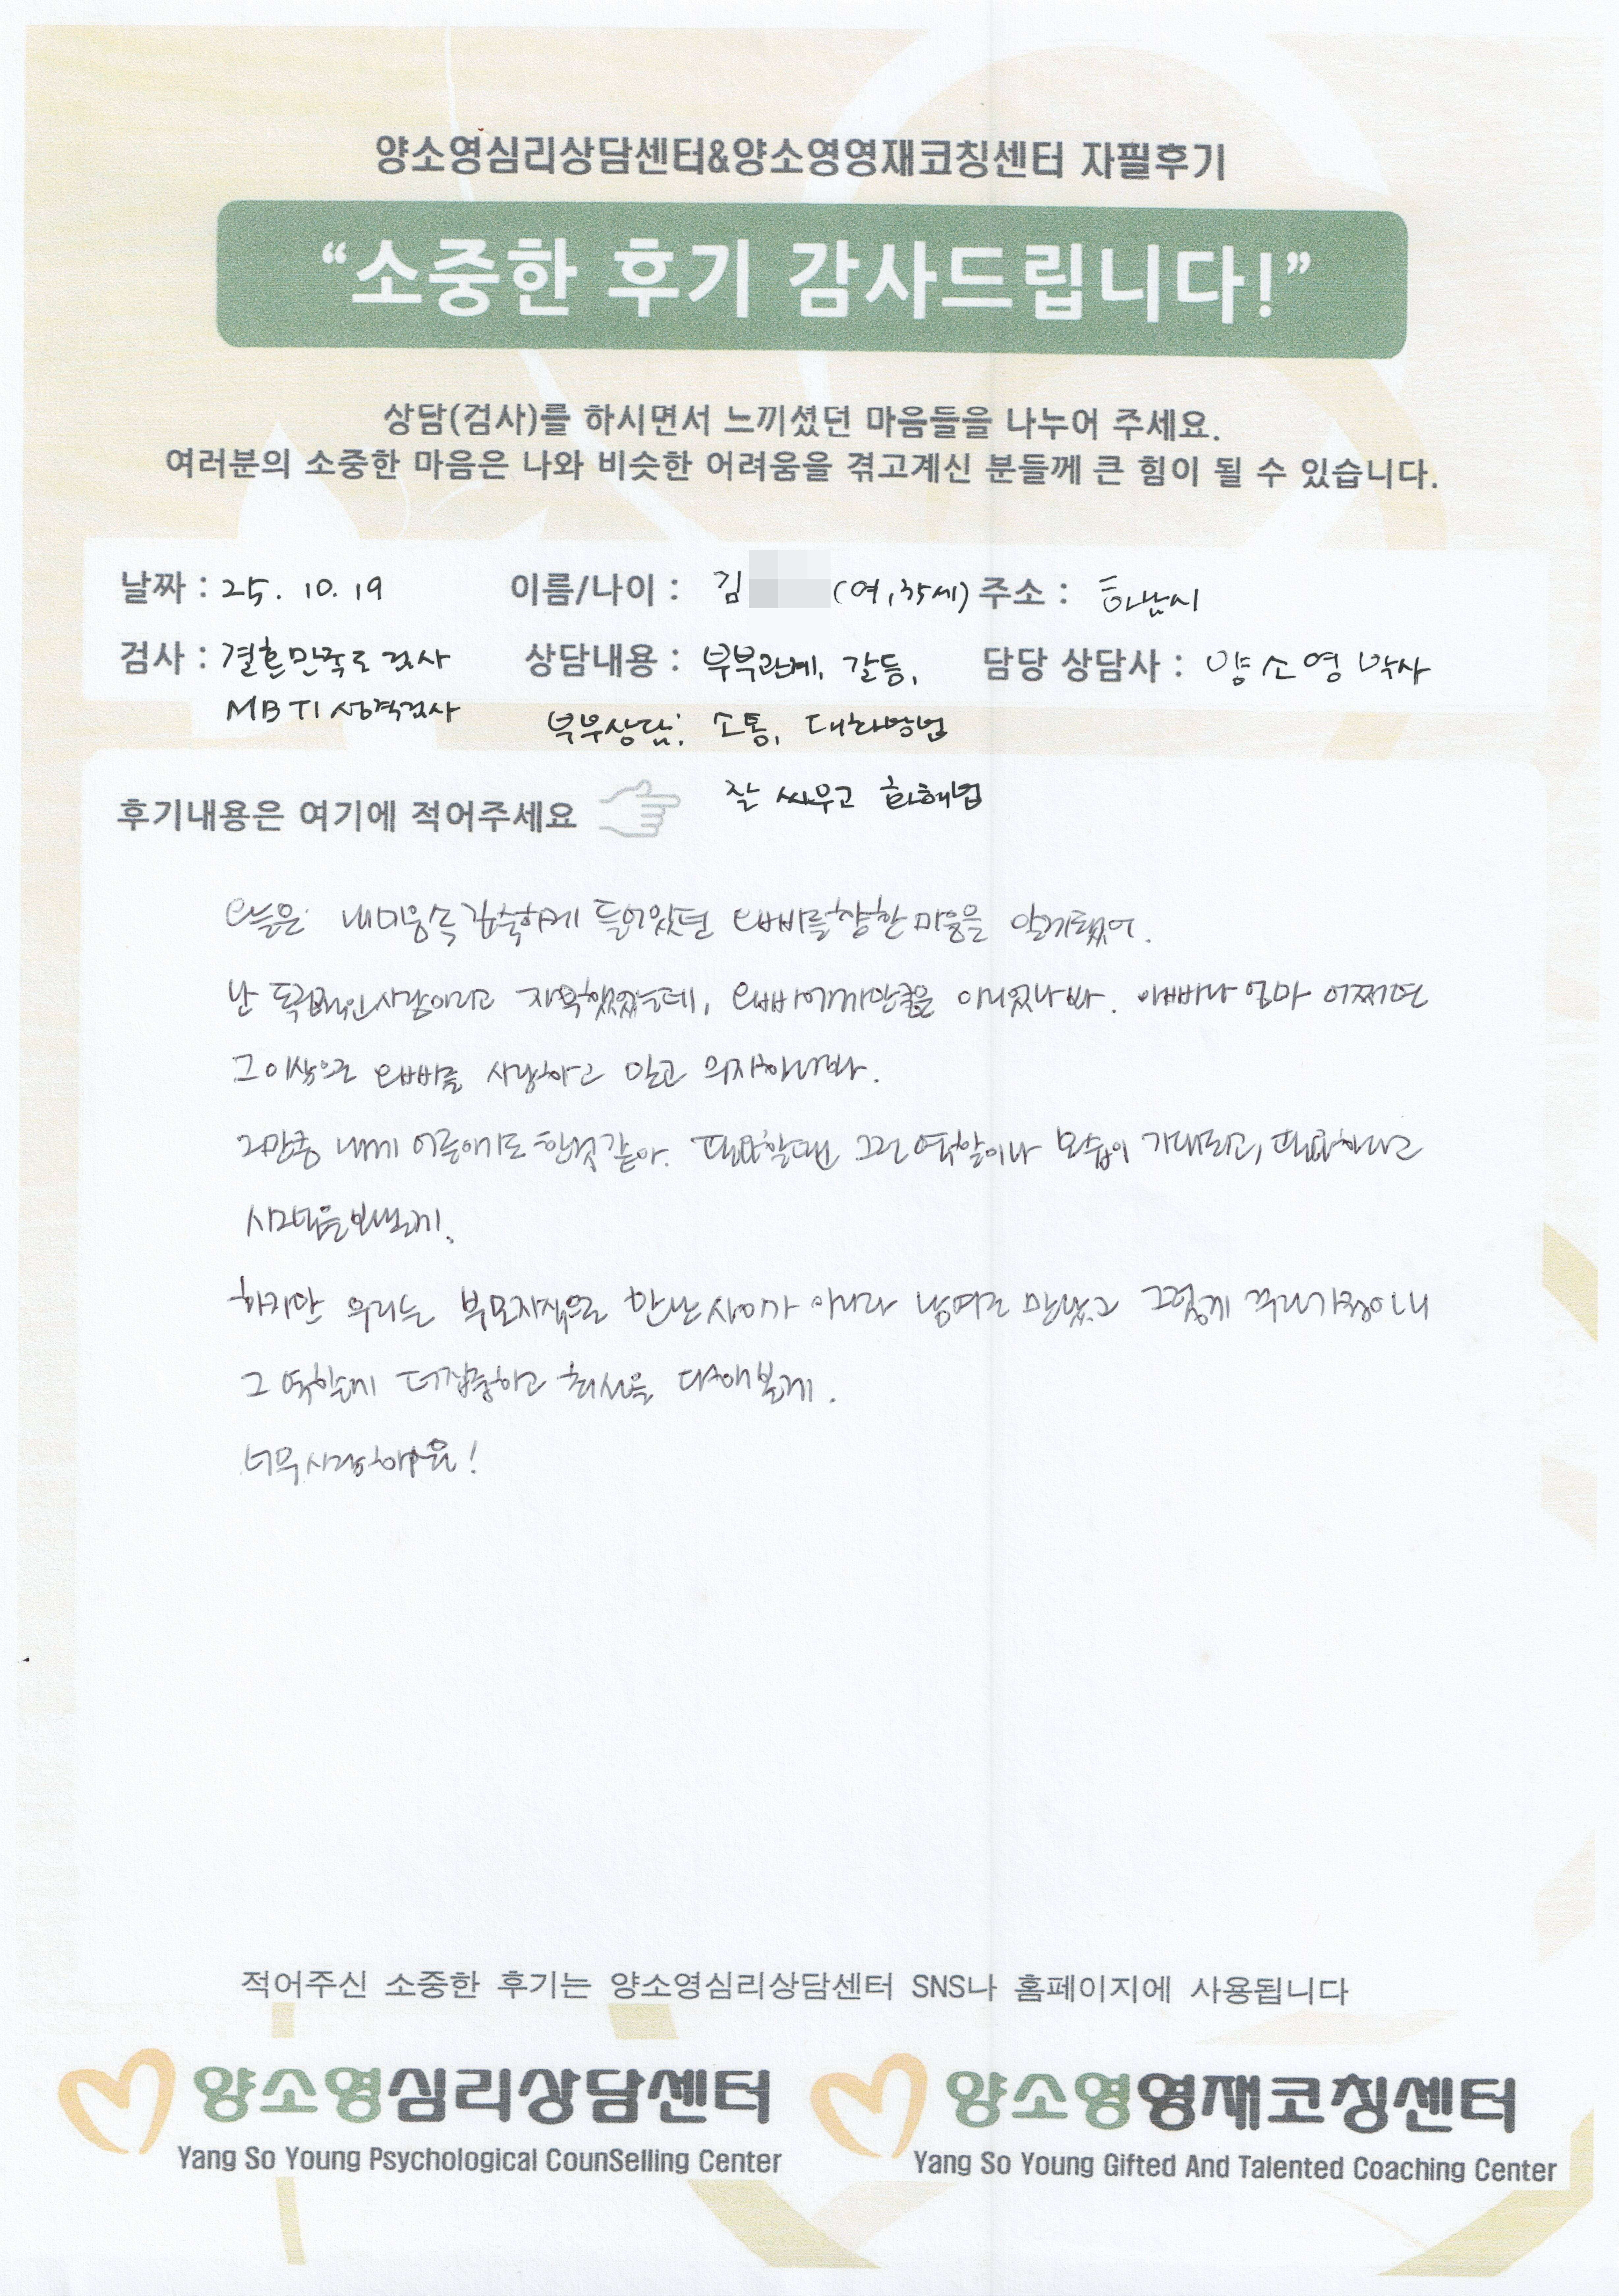 양소영심리상담센터&양소영영재코칭센터 자필후기
“소중한 후기 감사드립니다!”
상담(검사)를 하시면서 느끼셨던 마음들을 나누어 주세요.
여러분의 소중한 마음은 나와 비슷한 어려움을 겪고계신 분들께 큰 힘이 될 수 있습니다.
날짜 : 25. 10. 19 이름/나이 : 김 (여, 35세) 주소 : 하남시
검사 : 결혼만족도 검사 상담내용 : 부부관계, 갈등, 담당 상담사 : 양소영 박사
MBTI 성격검사 부부상담; 소통, 대화방법
잘 싸우고 화해법
후기내용은 여기에 적어주세요
오늘은 내마음속 깊숙하게 들어있던 오빠를향한 마음을 알게됐어.
난 독립적인사람이라고 자부했었는데, 오빠에게만큼은 아니었나봐. 아빠나 엄마 어쩌면
그이상으로 오빠를 사랑하고 믿고 의지하나봐.
그만큼 내게 어른이기도 한것같아. 필요할땐 그런 역할이나 모습이 기대되고, 필요하다고
시그널을보낼게.
하지만 우리는 부모자식으로 만난사이가 아니라 남여로 만났고 그렇게 꾸린가정이니
그 역할에 더집중하고 최선을 다해볼게.
너무사랑해요!
적어주신 소중한 후기는 양소영심리상담센터 SNS나 홈페이지에 사용됩니다
양소영심리상담센터 양소영영재코칭센터
Yang So Young Psychological CounSelling Center Yang So Young Gifted And Talented Coaching Center